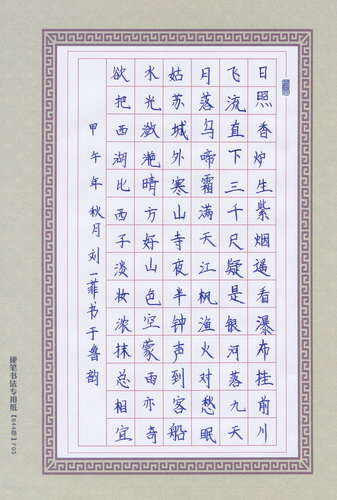 日照香炉生紫烟遥看瀑布挂前川
飞流直下三千尺疑是银河落九天
月落乌啼霜满天江枫渔火对愁眠
姑苏城外寒山寺夜半钟声到客船
水光潋滟晴方好山色空蒙雨亦奇
欲把西湖比西子淡妆浓抹总相宜
甲午年秋月刘一菲书于鲁韵
硬笔书法专用纸